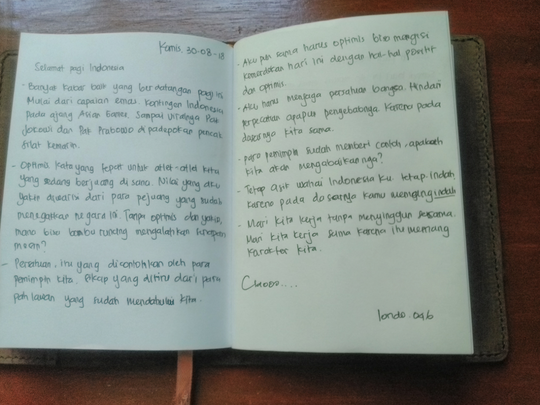 Kamis, 30-08-18
Selamat pagi Indonesia
- Banyak kabar baik yang berdatangan pagi ini
Mulai dari capaian emas kontingen Indonesia
pada ajang Asian Games. Sampai viralnya Pak
Jokowi dan Pak Prabowo di padepokan pencak
silat kemarin.
- Optimis kata yang tepat untuk atlet-atlet kita
yang sedang berjuang di sana. Nilai yang aku
yakin diwarisi dari para pejuang yang sudah
menegaskan negara ini. Tanpa optimis
mana bisa bambu runcing mengalahkan
mesin?
- Persatuan, itu yang dicontohkan oleh para
pemimpin kita. Sikap yang ditiru dari para
pahlawan yang sudah mendahului kita.
- Aku pun sama harus optimis bisa mengisi
kemerdekaan hari ini dengan hal-hal positif
dan optimis.
- Aku harus menjaga persatuan bangsa. Hindari
perpecahan apapun penyebabnya. Karena pada
dasarnya kita sama.
- para pemimpin sudah memberi contoh, apakah
kita akan mengabaikannya?
- Tetap asik wahai Indonesia ku tetap indah
karena pada dasarnya kamu memang indah
- Mari kita kerja tanpa menyinggung sesama.
Mari kita kerja sama karena itu memang
karakter kita.
londo.046